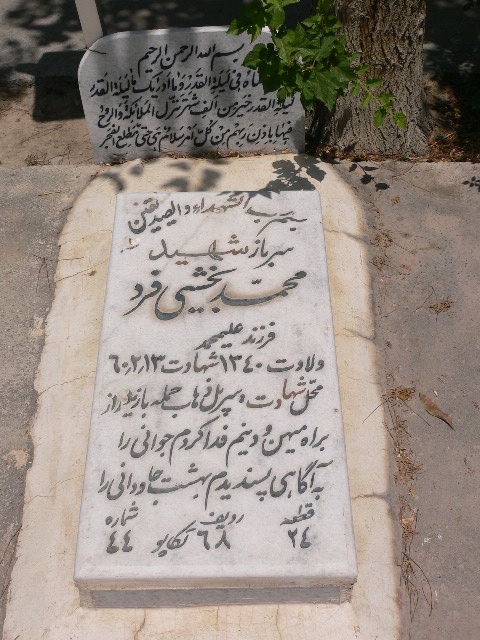 بسم الله الرحمن الرحیم
فی لیلة القدر وما ادریک ما لیلة القدر
لیلة القدر خیر من الف شهر تنزل الملائکة والروح
فیها باذن ربهم من کل امر سلام هی حتی مطلع الفجر
بسم رب الشهداء و الصدیقین
سرباز شهید
محمد بخشی فرد
فرزند علیمحمد
ولادت ۱۳۴۰ شهادت ۶۰،۲،۱۳
محل شهادت سرپل ذهاب حمله بازیدراز
براه میهن و دینم فدا کردم جوانی را
به آگاهی پسندیدم بهشت جاودانی را
قطعه ردیف شماره
۲۴ ۶۸ تکاپو ۴۴